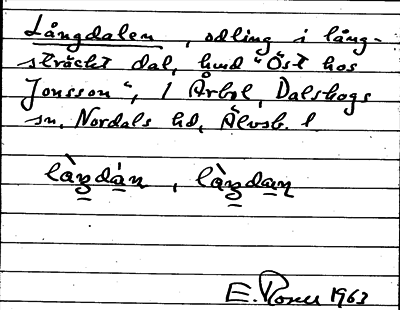 Långdalen, odling i lång-
sträckt dal, hmd "Öst hos
Jonsson", 1 Årbol, Dalskogs
sn, Nordals hd, Älvsb. l
làŋdán, làŋdan
E. 1963